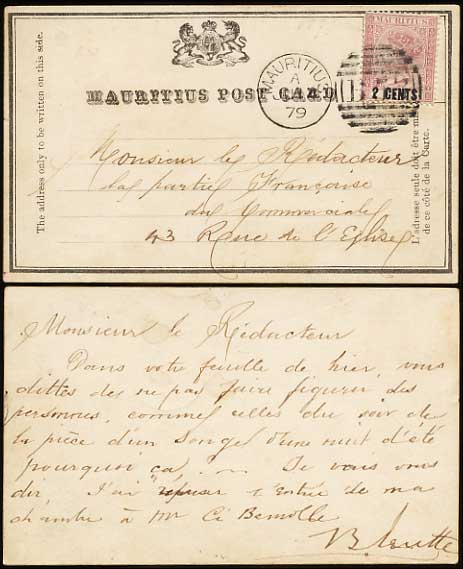 MAURITIUS
2 CENTS
MAURITIUS POST CARD
MAURITIUS
A
79
The address only to be written on this side.
L'adresse seule doit être
de ce côté de la Carte.
Monsieur le Rédacteur
de la partie Française
du Commercial
43 Rue de l'Eglise
Monsieur le Rédacteur
Dans votre feuille de hier, vous
dittes de ne pas faire figurer des
personnes, comme celles du soir de
la pièce d'un Songe d'une nuit d'été
pourquoi ça, . ~ . Je vous
dir, J'ai refuser l'Entrée de ma
chambre à Mr Ci Bemolle